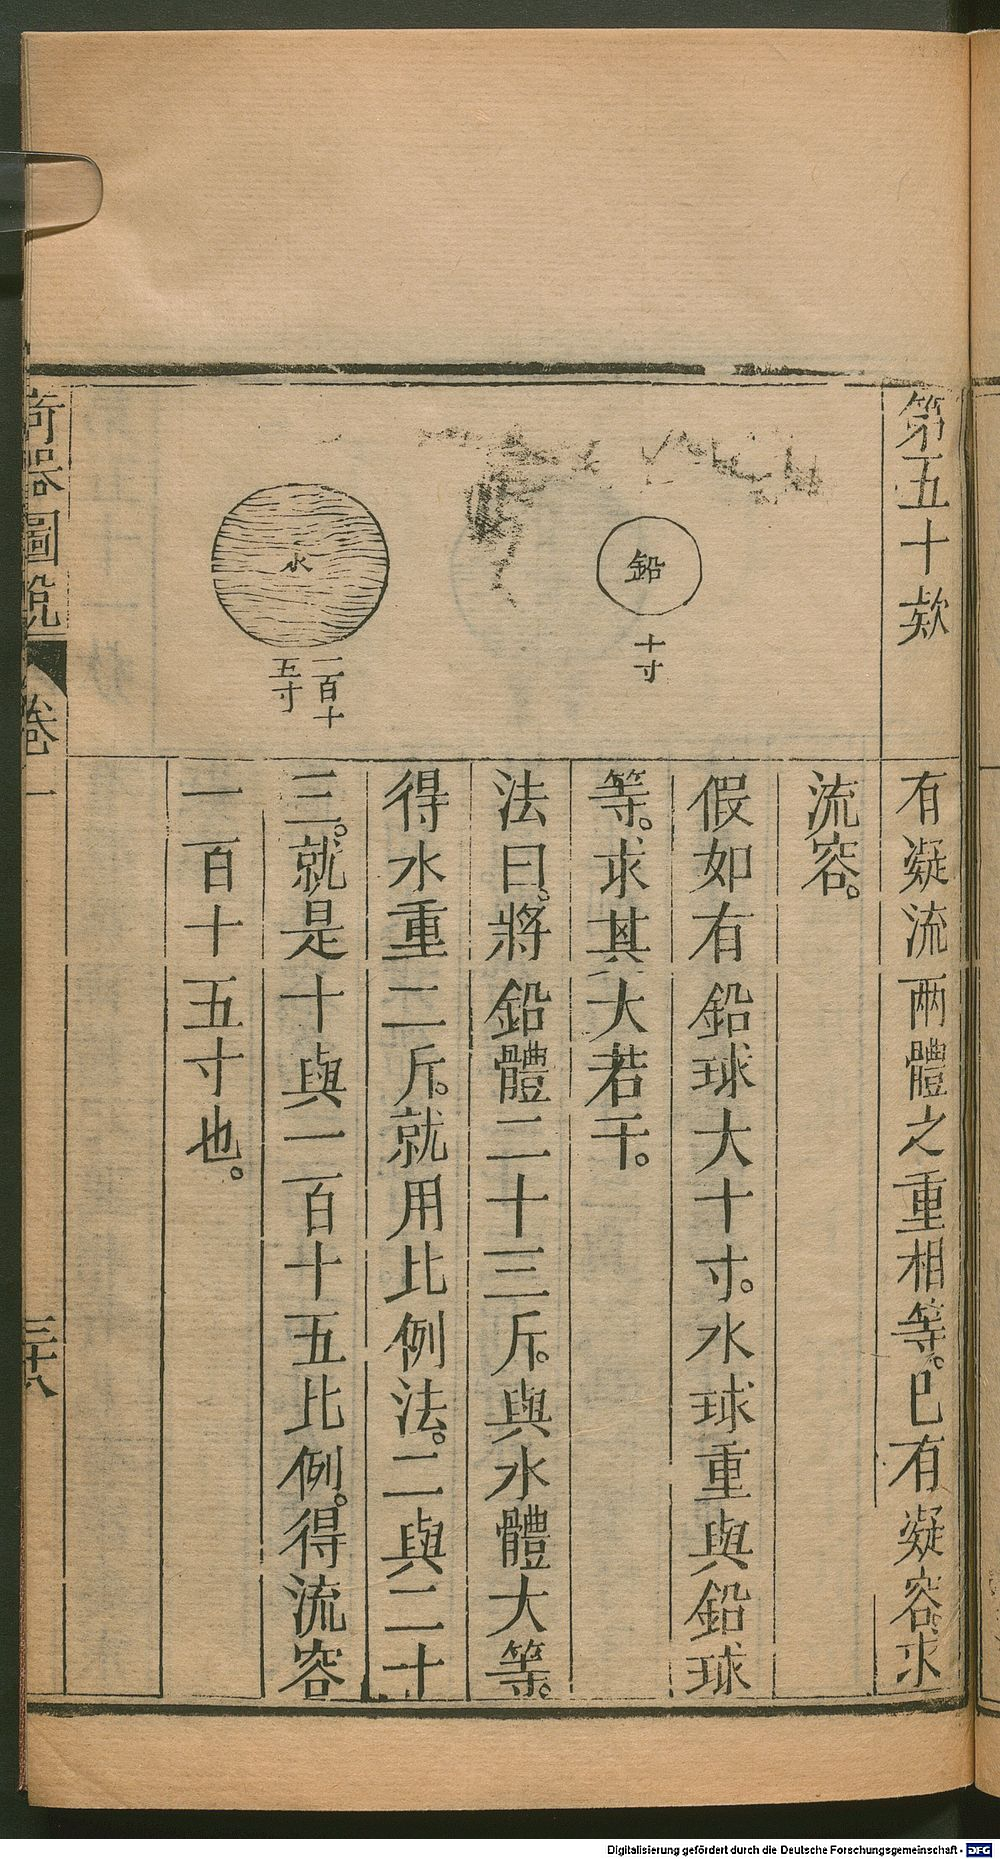 第五十欵
有凝流兩體之重相等。已有凝容。求
流容。
鉛
十寸
水
一百十
五寸
假如有鉛球大十寸。水球重與鉛球
等。求其大若干。
法曰。將鉛體二十三斤。與水體大等。
得水重二斤。就用比例法。二與二十
三。就是十與一百十五比例。得流容
一百十五寸也。
奇器圖說
卷一
三十八
Digitalisierung gefördert durch die Deutsche Forschungsgemeinschaft - DFG